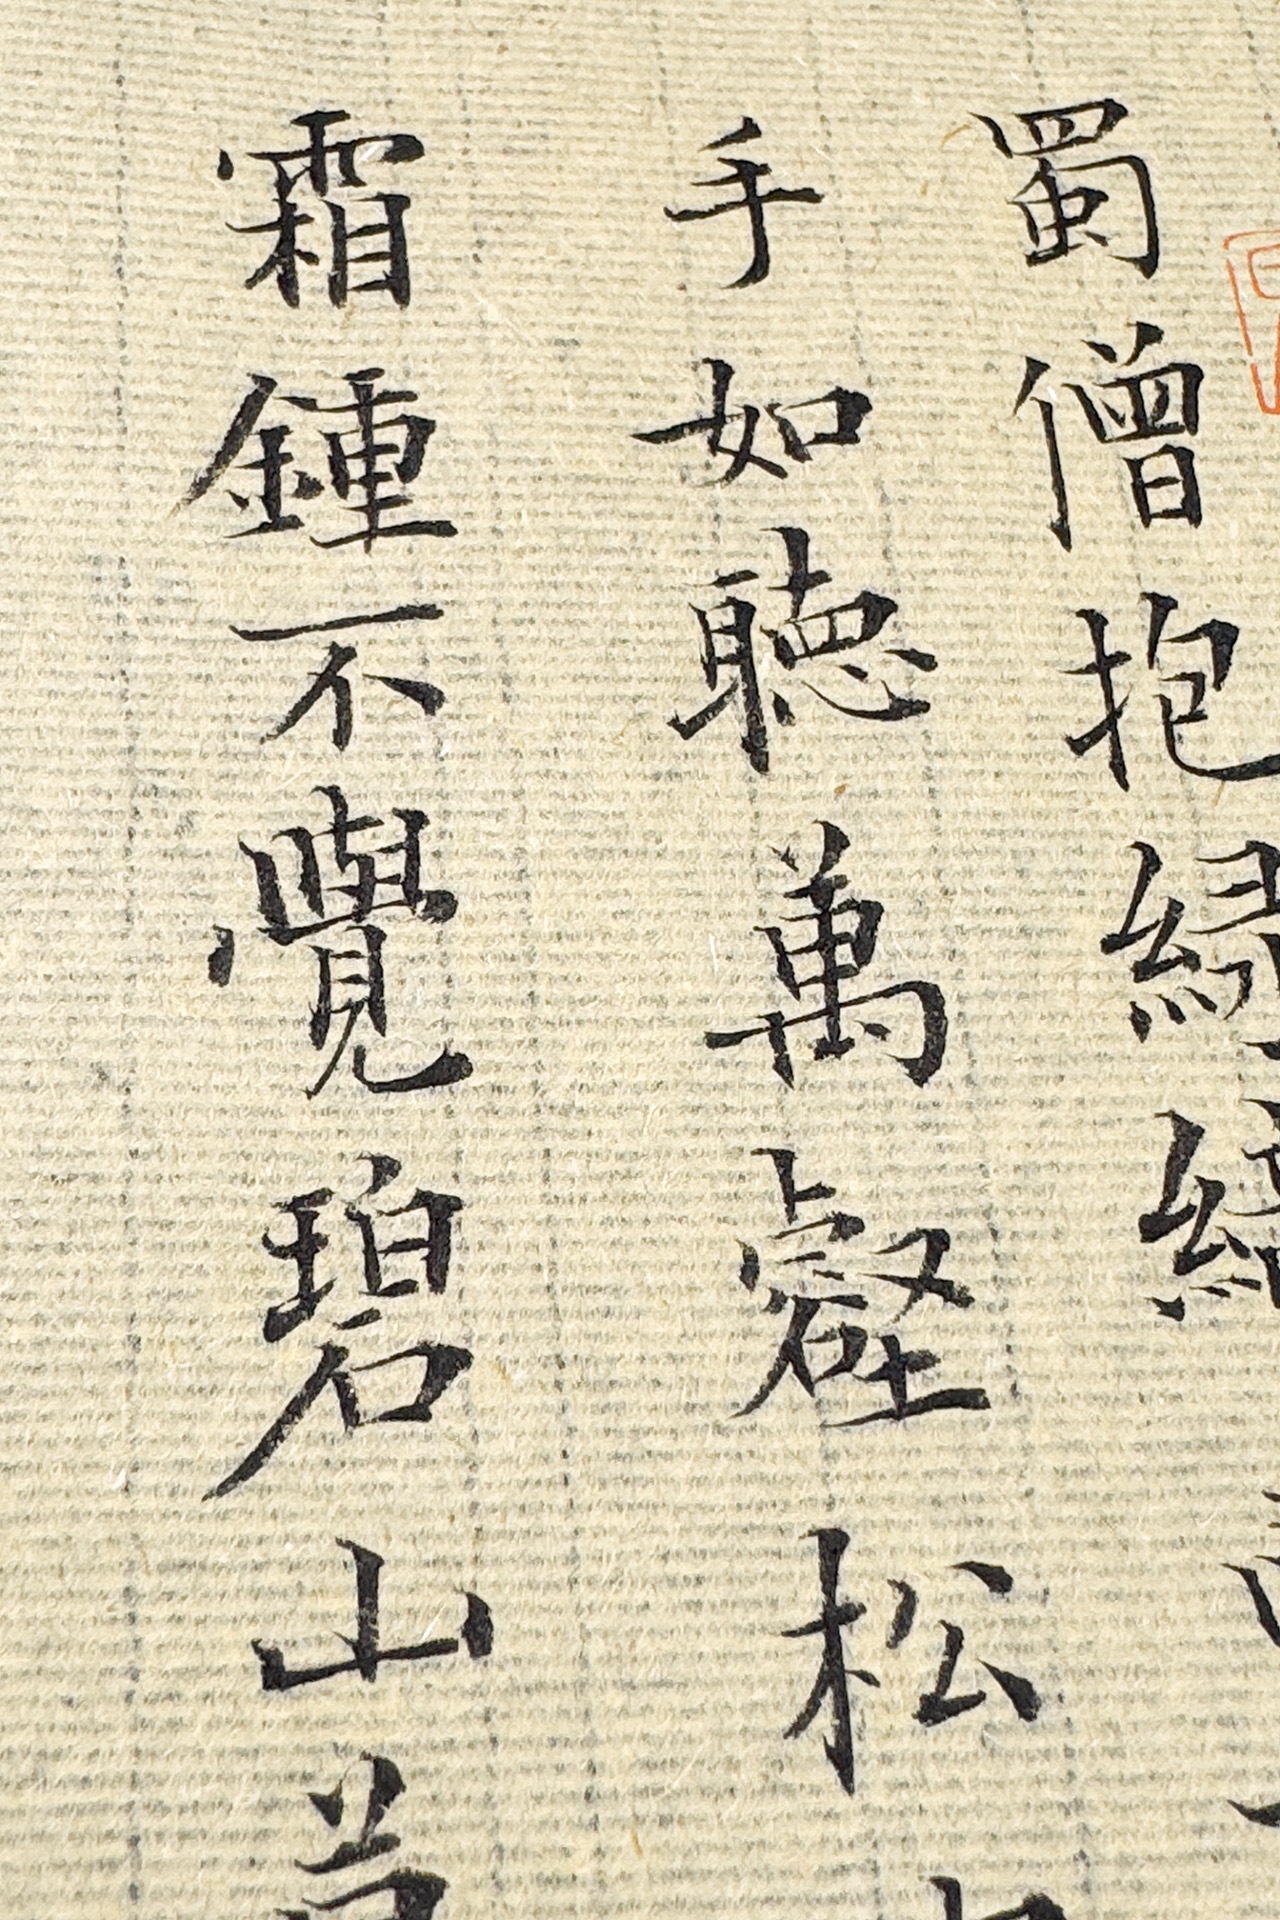 蜀僧抱綠
手如聴萬壑松
霜鍾不覺碧山